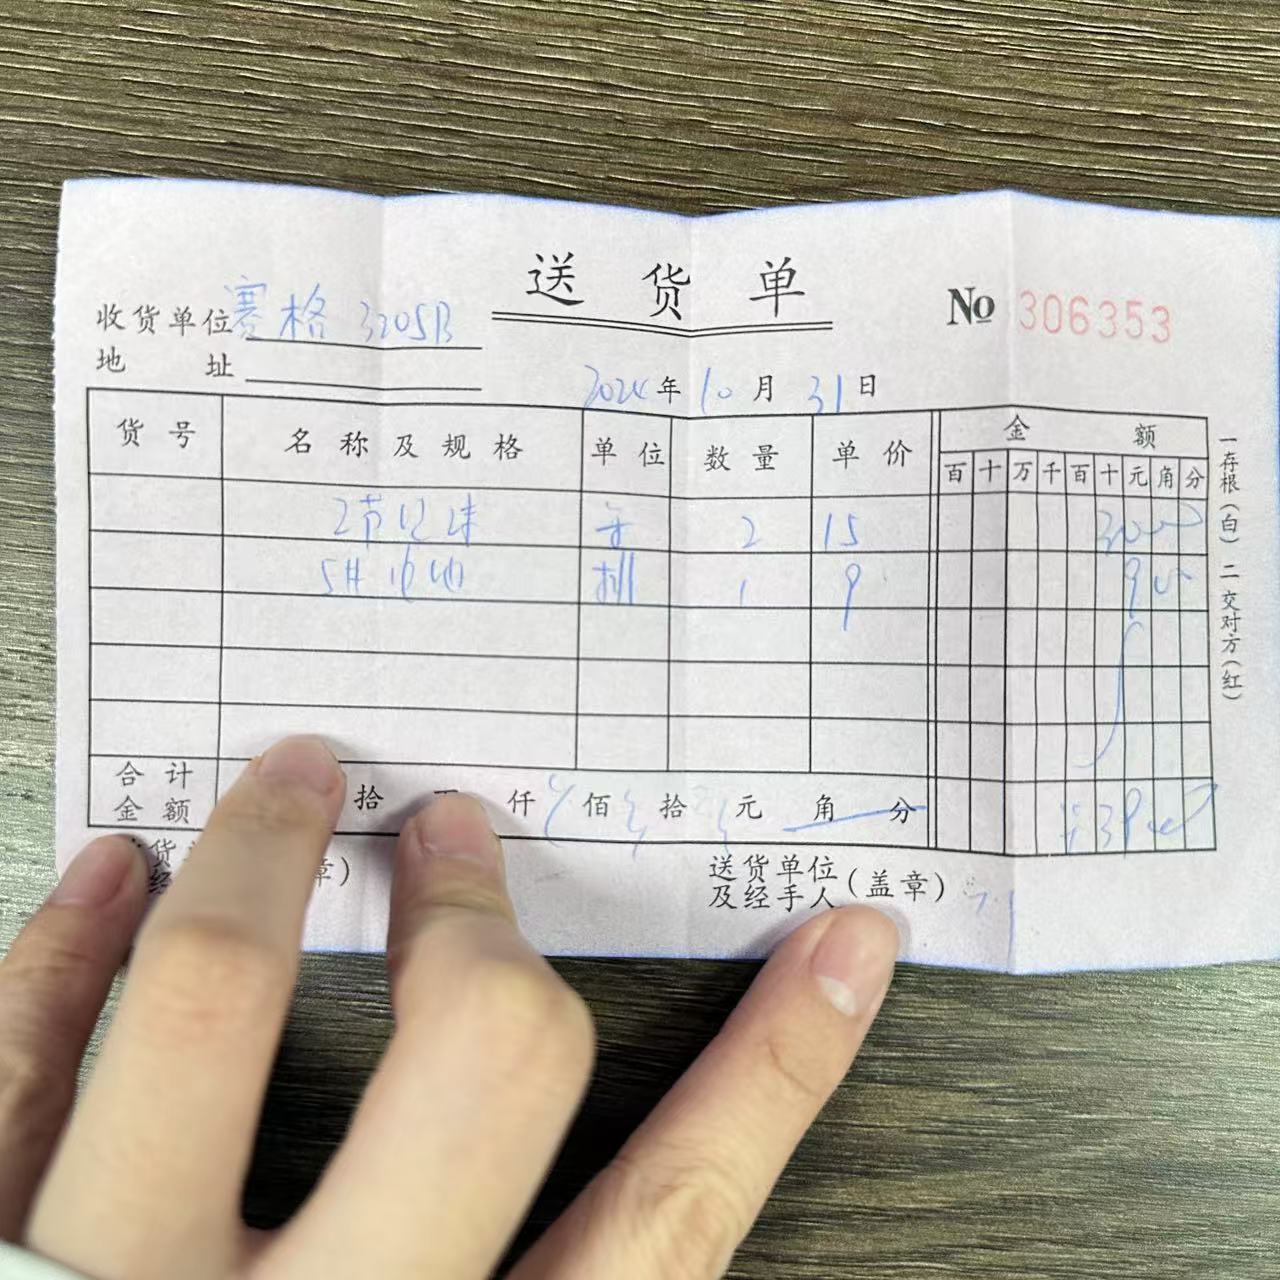 送货单
收货单位 赛格 3205B
No 306353
地址
2024年10月31日
货号 名称及规格 单位 数量 单价 金额
百 十 万 千 百 十 元 角 分
2 15 3000
5# 电池 排 1 9 900
合计金额 拾 仟 佰 拾 元 角 分 ¥3900
送货单位及经手人(盖章)
一存根(白) 二交对方(红)